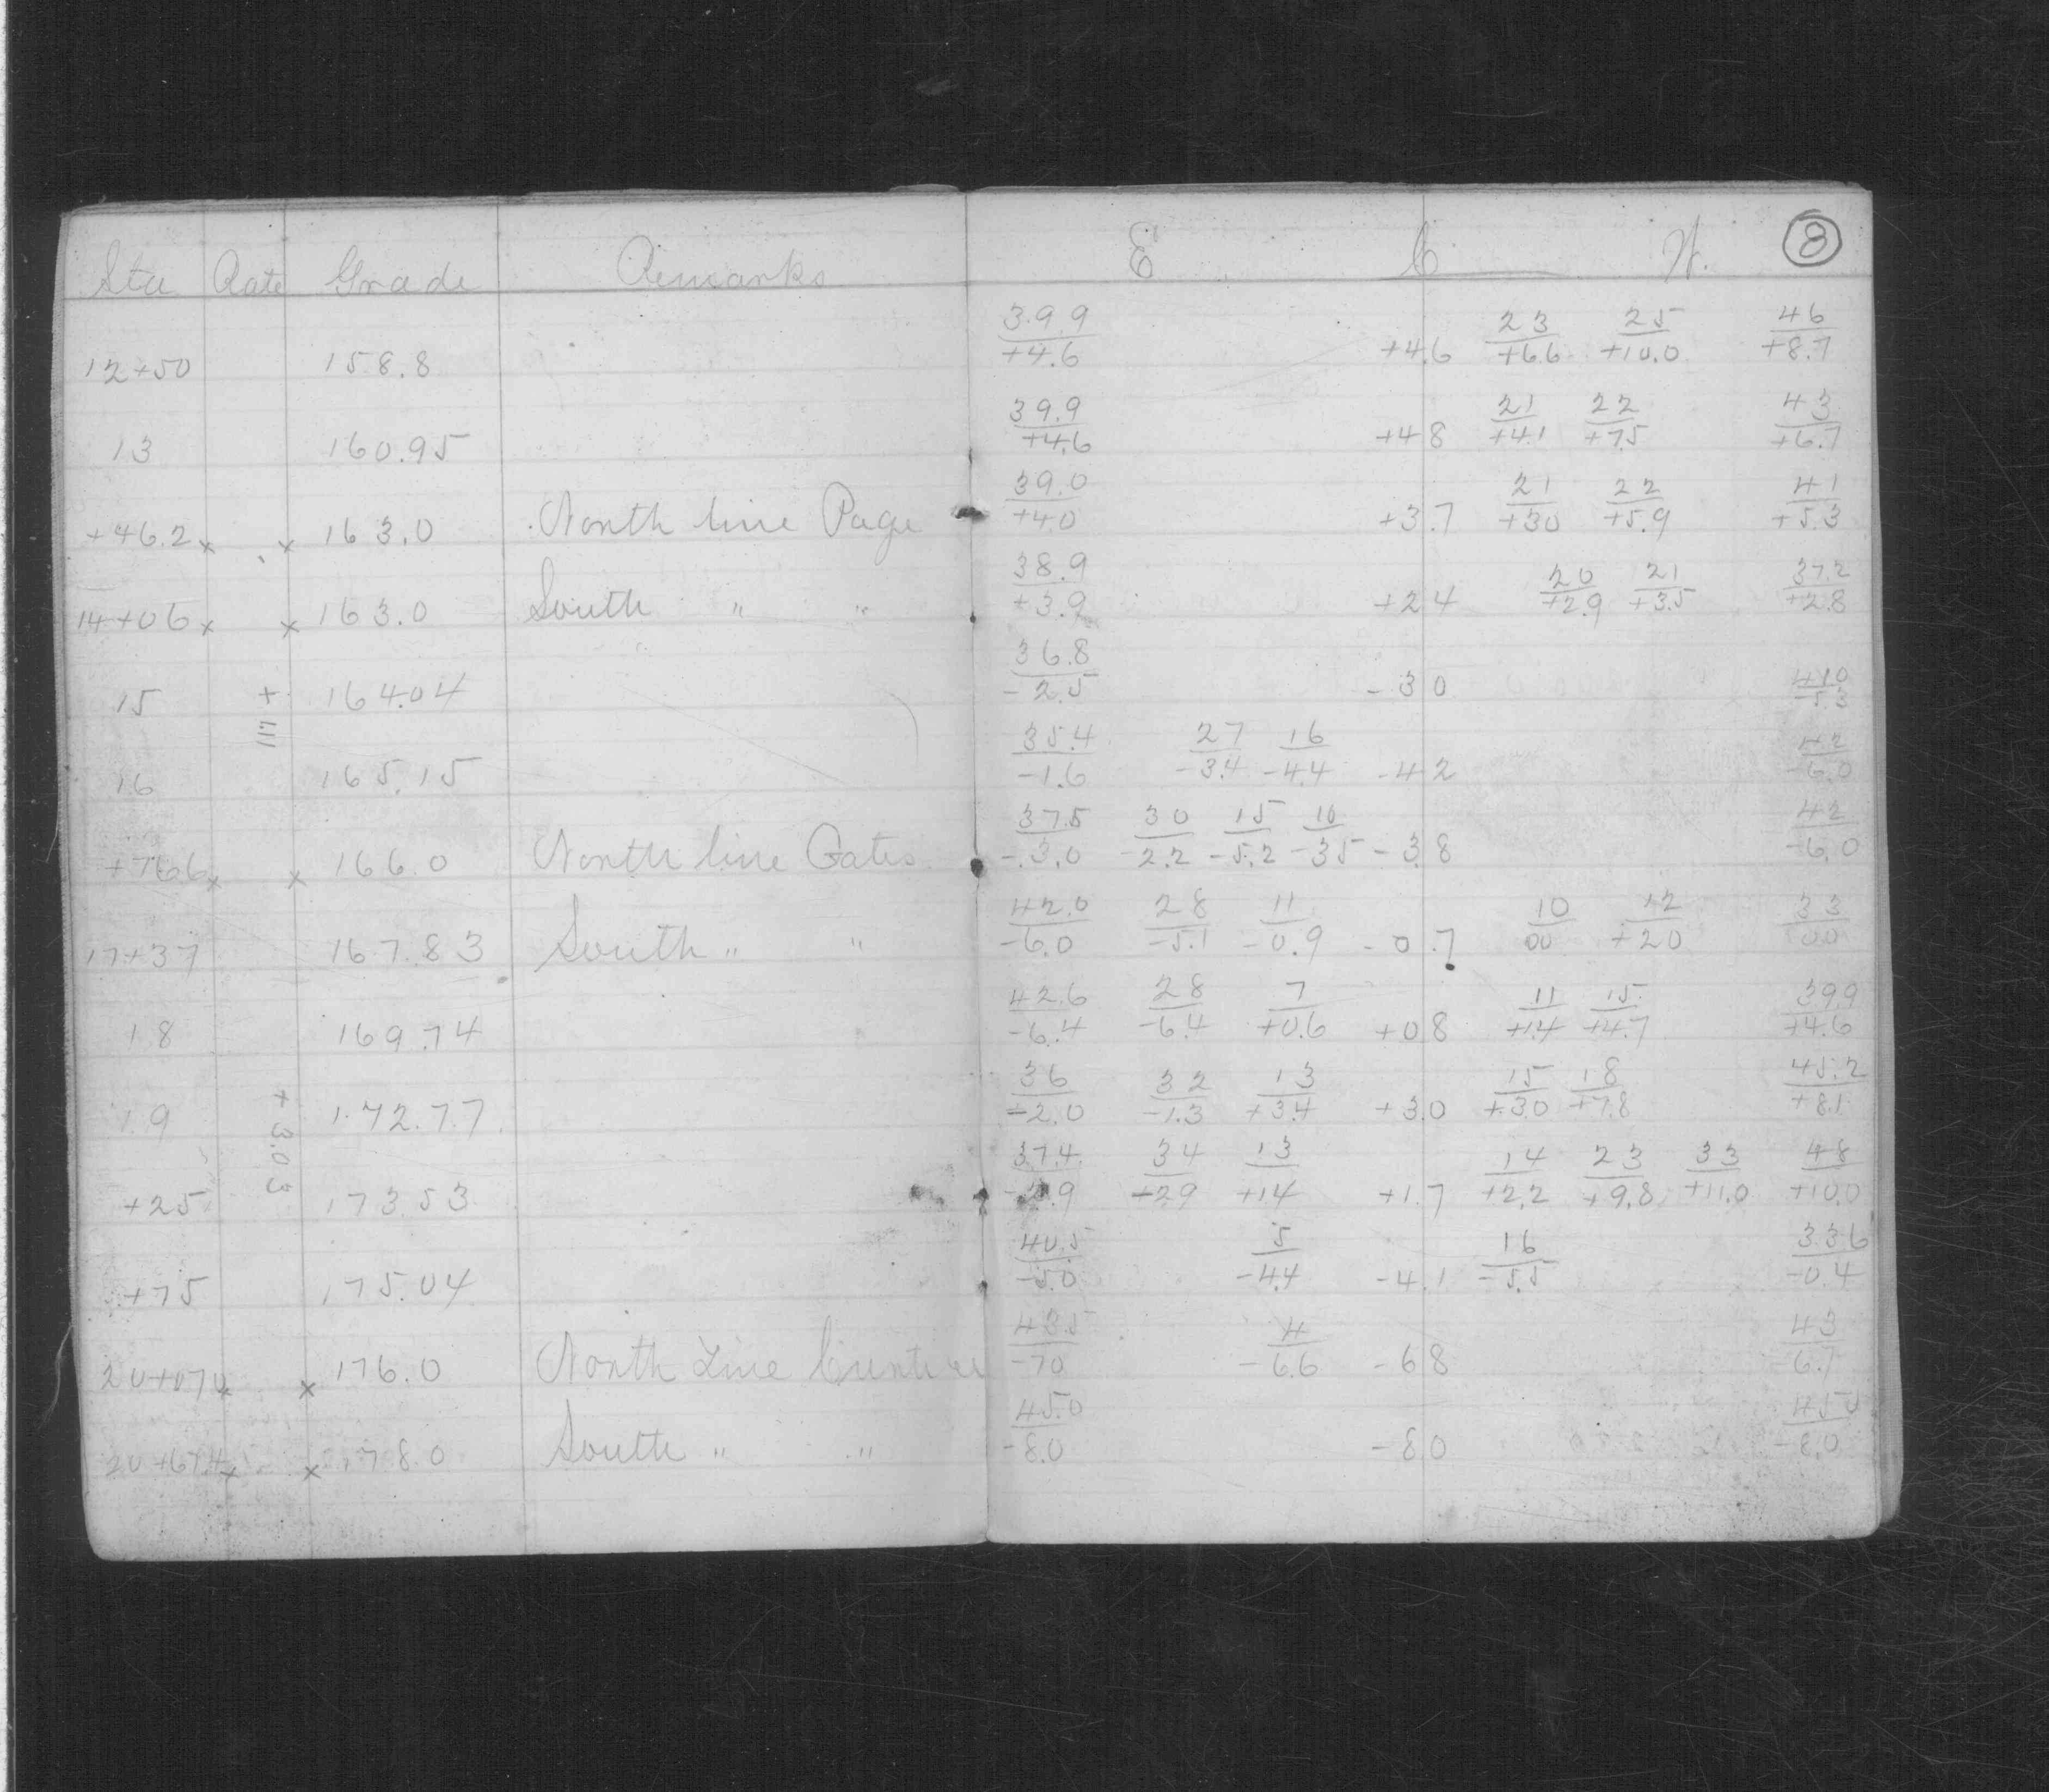 Sta Rate Grade Remarks E C W. 8
39.9 23 25 46
12+50 158.8 +4.6 +4.6 +6.6 +10.0 +8.7
39.9 21 22 43
13 160.95 +4.6 +4.8 +4.1 +7.5 +6.7
39.0 21 22 41
+46.2 x x 163.0 North line Page +4.0 +3.7 +3.0 +5.9 +5.3
38.9 20 21 37.2
14+06 x x 163.0 South " " +3.9 +2.4 +2.9 +3.5 +2.8
36.8 41.0
15 + 1.11 164.04 -2.5 -3.0 -5.3
35.4 27 16 42
16 165.15 -1.6 -3.4 -4.4 -4.2 -6.0
37.5 30 15 10 42
+76.6 x x 166.0 North line Gates -3.0 -2.2 -5.2 -3.5 -3.8 -6.0
42.0 28 11 10 12 33
17+37 167.83 South " " -6.0 -5.1 -0.9 -0.7 00 +2.0 00
42.6 28 7 11 15 39.9
18 169.74 -6.4 -6.4 +0.6 +0.8 +1.4 +4.7 +4.6
36 32 13 15 18 45.2
19 + 3.03 172.77 -2.0 -1.3 +3.4 +3.0 +3.0 +7.8 +8.1
37.4 34 13 14 23 33 48
+25 173.53 -2.9 -2.9 +1.4 +1.7 +2.2 +9.8 +11.0 +10.0
40.5 5 16 33.6
+75 175.04 -5.0 -4.4 -4.1 -5.5 -0.4
43.5 11 43
x 176.0 North Line -7.0 -6.6 -6.8 -6.7
45.0 45.0
20+67.4 x x 178.0 South " " -8.0 -8.0 -8.0